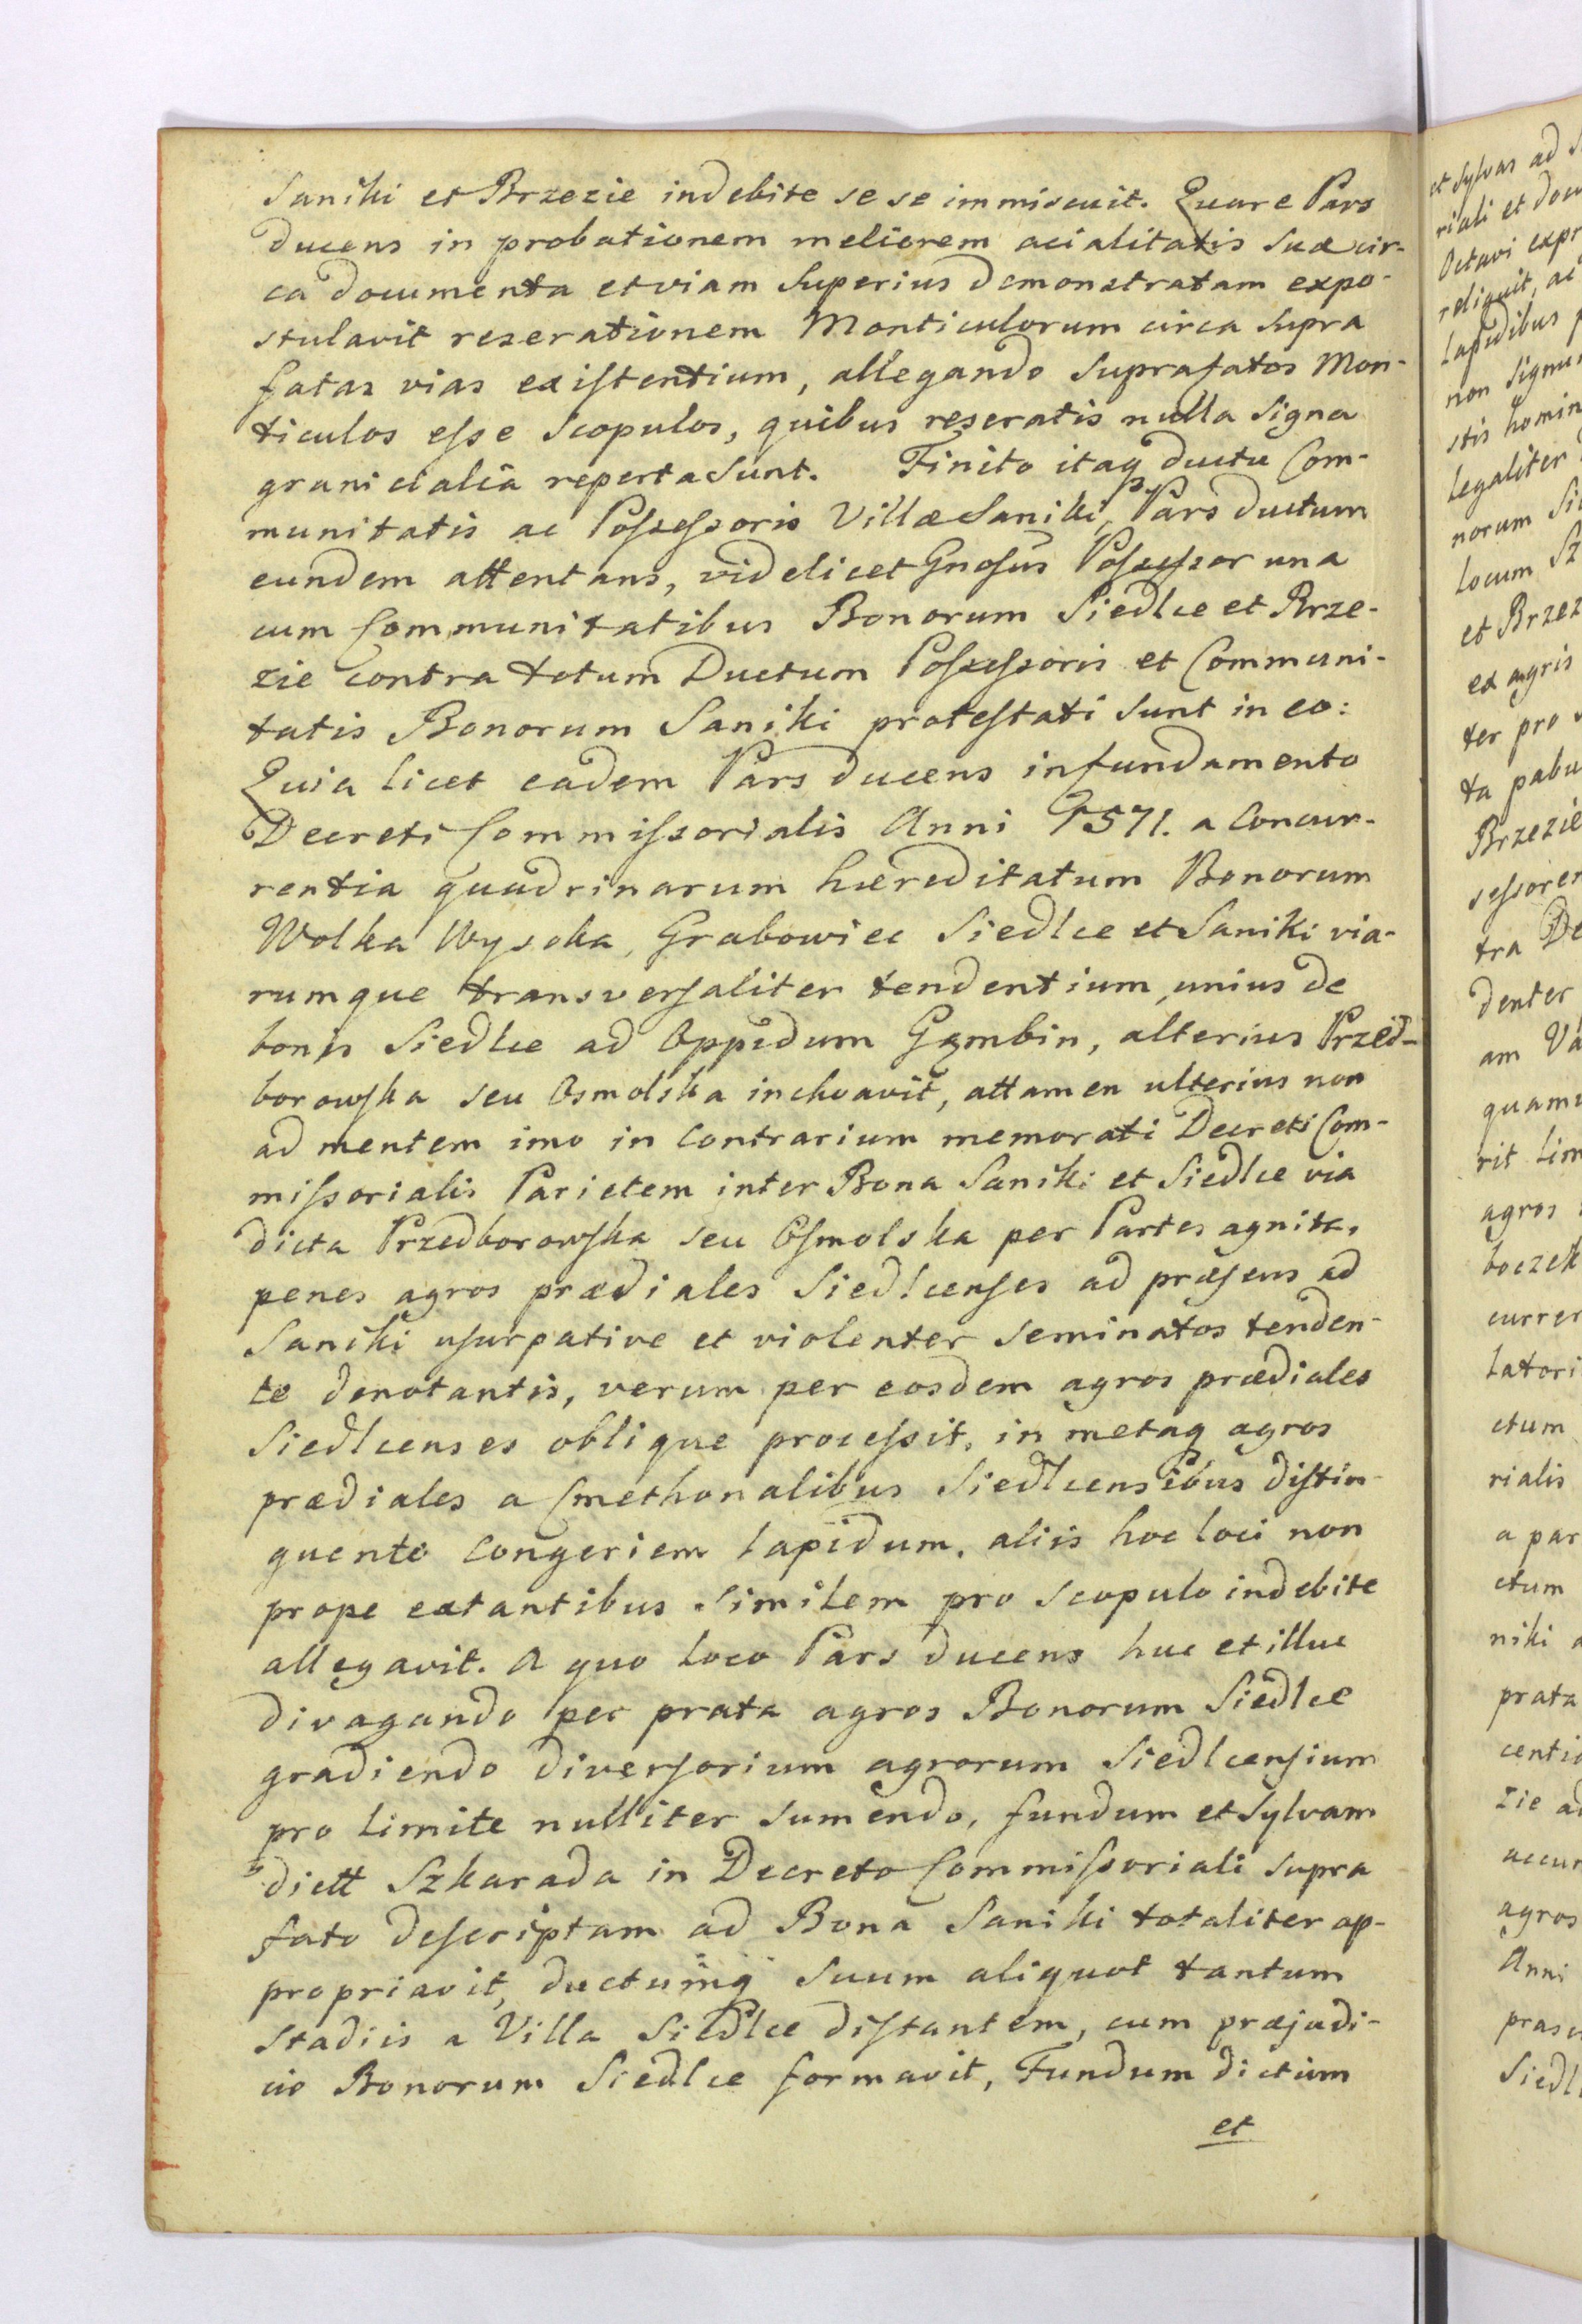 Saniki et Brzezie indebite sese immiscuit. Quare Pars
ducens in probationem meliorem acialitatis suæ cir-
ca documenta et viam superius demonstratam expo-
stulavit reserationem Monticulorum circa supra
fatas vias existentium, allegando suprafatos Mon-
ticulos esse scopulos, quibus reseratis nulla signa
granicialia reperta sunt. Finito itaq ductu Com-
munitatis ac Possessoris Villæ Saniki, Pars ductum
eundem attentans, videlicet Gnosus Possessor una
cum Communitatibus Bonorum Siedlce et Brze-
zie contra totum Ductum Possessoris et Communi-
tatis Bonorum Saniki protestati sunt in eo:
Quia licet eadem Pars ducens in fundamento
Decreti Commissorialis Anni 1571. a Concur-
rentia quadrinarum hæreditatum Bonorum
Wolka Wysoka, Grabowiec Siedlce et Saniki via-
rumque transversaliter tendentium, unius de
bonis Siedlce ad Oppidum Gąmbin, alterius Przed-
borowska seu Osmolska inchoavit, attamen ulterius non
ad mentem imo in contrarium memorati Decreti Com-
missorialis Parietem inter Bona Saniki et Siedlce via
dicta Przedborowska seu Osmolska per Partes agnita,
penes agros prædiales Siedlcenses ad præsens ad
Saniki usurpative et violenter seminatos tenden-
te denotantis, verum per eosdem agros prædiales
Siedlcenses oblique processit, in metaq agros
prædiales a Cmethonalibus Siedlcensibus distin-
quente congeriem lapidum, aliis hoc loci non
prope extantibus similem pro scopulo indebite
allegavit. A quo loco Pars ducens huc et illuc
divagando per prata agros Bonorum Siedlce
gradiendo diversorium agrorum Siedlcensium
pro limite nulliter sumendo, fundum et Sylvam
dictt Szkarada in Decreto Commissoriali supra
fato descriptam ad Bona Saniki totaliter ap-
propriavit, ductumq suum aliquot tantum
stadiis a Villa Siedlce distantem, cum præjudi-
cio Bonorum Siedlce formavit, Fundum dictum
et
et Sylvas ad
riali et
Octavi
reliquit, ac
Lapidibus
non
stis
legaliter
norum
locum
et
ex agris
ter pro
ta
Brzezie
tra
denter
am
rit
agros
ctum
rialis
a par
ctum
niki
prata
zie
agros
Anni